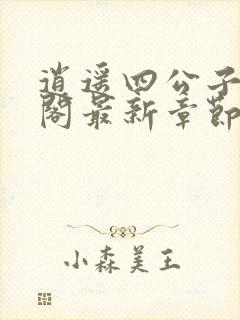 逍遥四公子
阁最新章节
小森美王